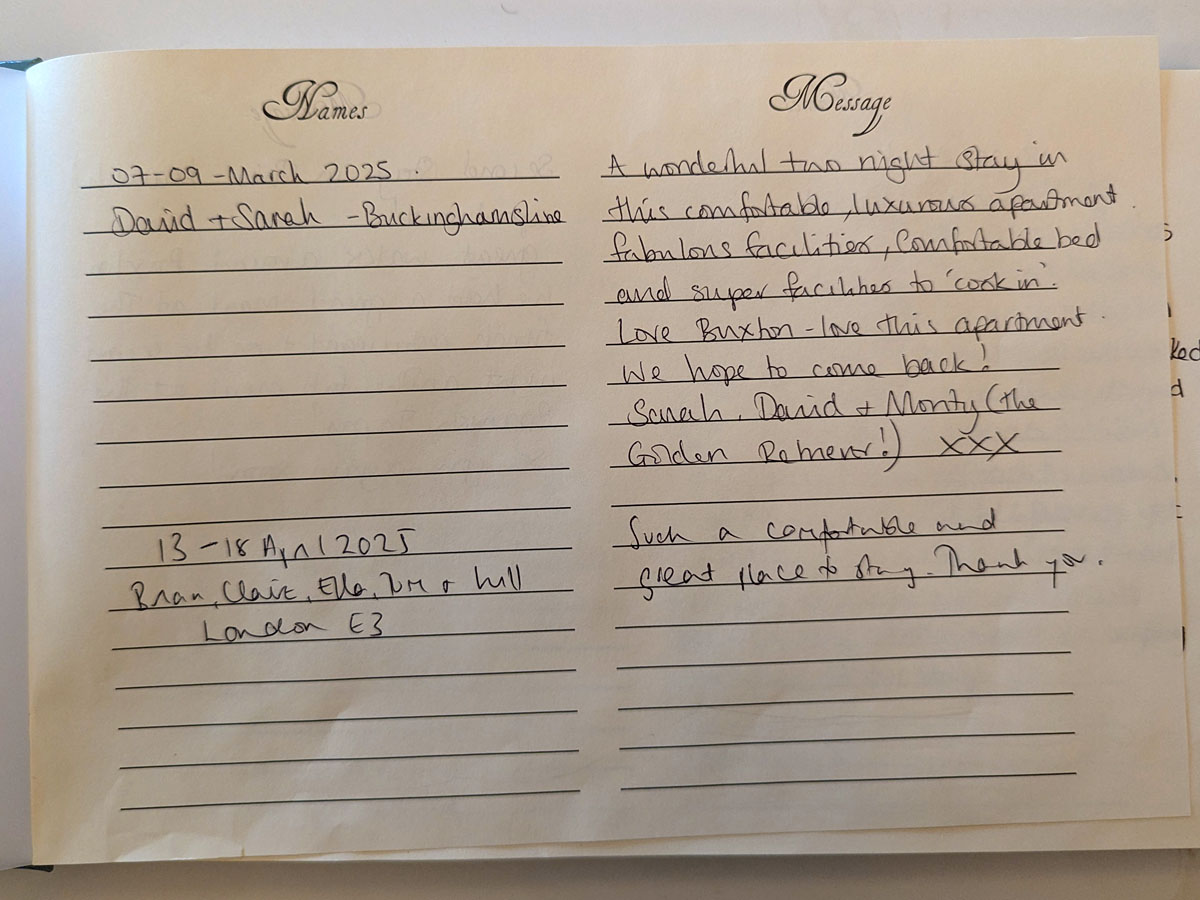 Names
07-09-March 2025.
David + Sarah - Buckinghamshire
13-18 April 2025
Brian, Claire, Ella, Tom &
London E3
Message
A wonderful two night stay in
this comfortable, luxurous apartment.
fabulous facilities, Comfortable bed
and super facilities to 'cook in'.
Love Buxton - love this apartment.
We hope to come back!
Sarah, David + Monty (the
Golden Retriever!) XXX
Such a comfortable and
great place to stay. Thank you.